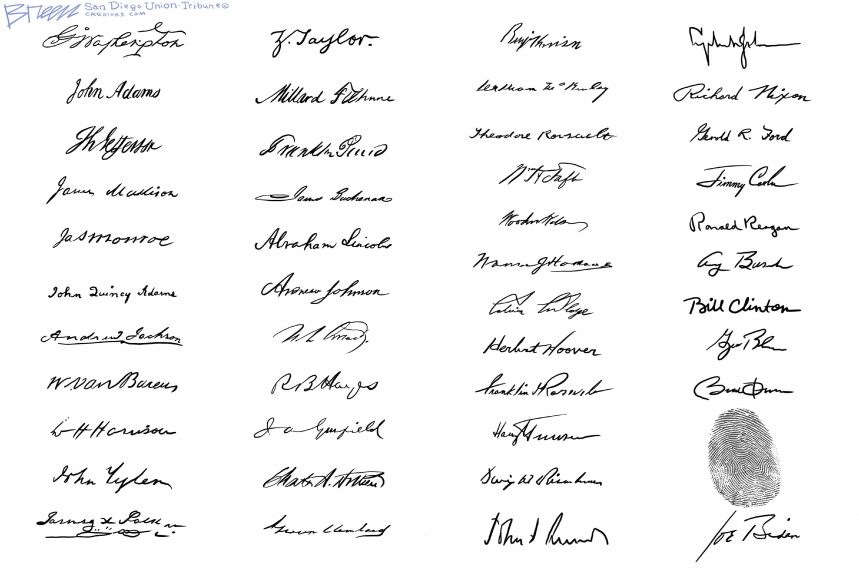 Breen San Diego Union-Tribune©
CREATORS.COM
G Washington
John Adams
Th Jefferson
James Madison
Jas Monroe
John Quincy Adams
Andrew Jackson
W Van Buren
W H Harrison
John Tyler
James K Polk
Z. Taylor.
Millard Fillmore
Franklin Pierce
James Buchanan
Abraham Lincoln
Andrew Johnson
R B Hayes
J A Garfield
Chester A. Arthur
Grover Cleveland
Benj Harrison
William McKinley
Theodore Roosevelt
W H Taft
Woodrow Wilson
Warren G Harding
Calvin Coolidge
Herbert Hoover
Franklin D Roosevelt
Harry Truman
Dwight D Eisenhower
John F Kennedy
Lyndon B Johnson
Richard Nixon
Gerald R. Ford
Jimmy Carter
Ronald Reagan
G Bush
Bill Clinton
Joe Biden